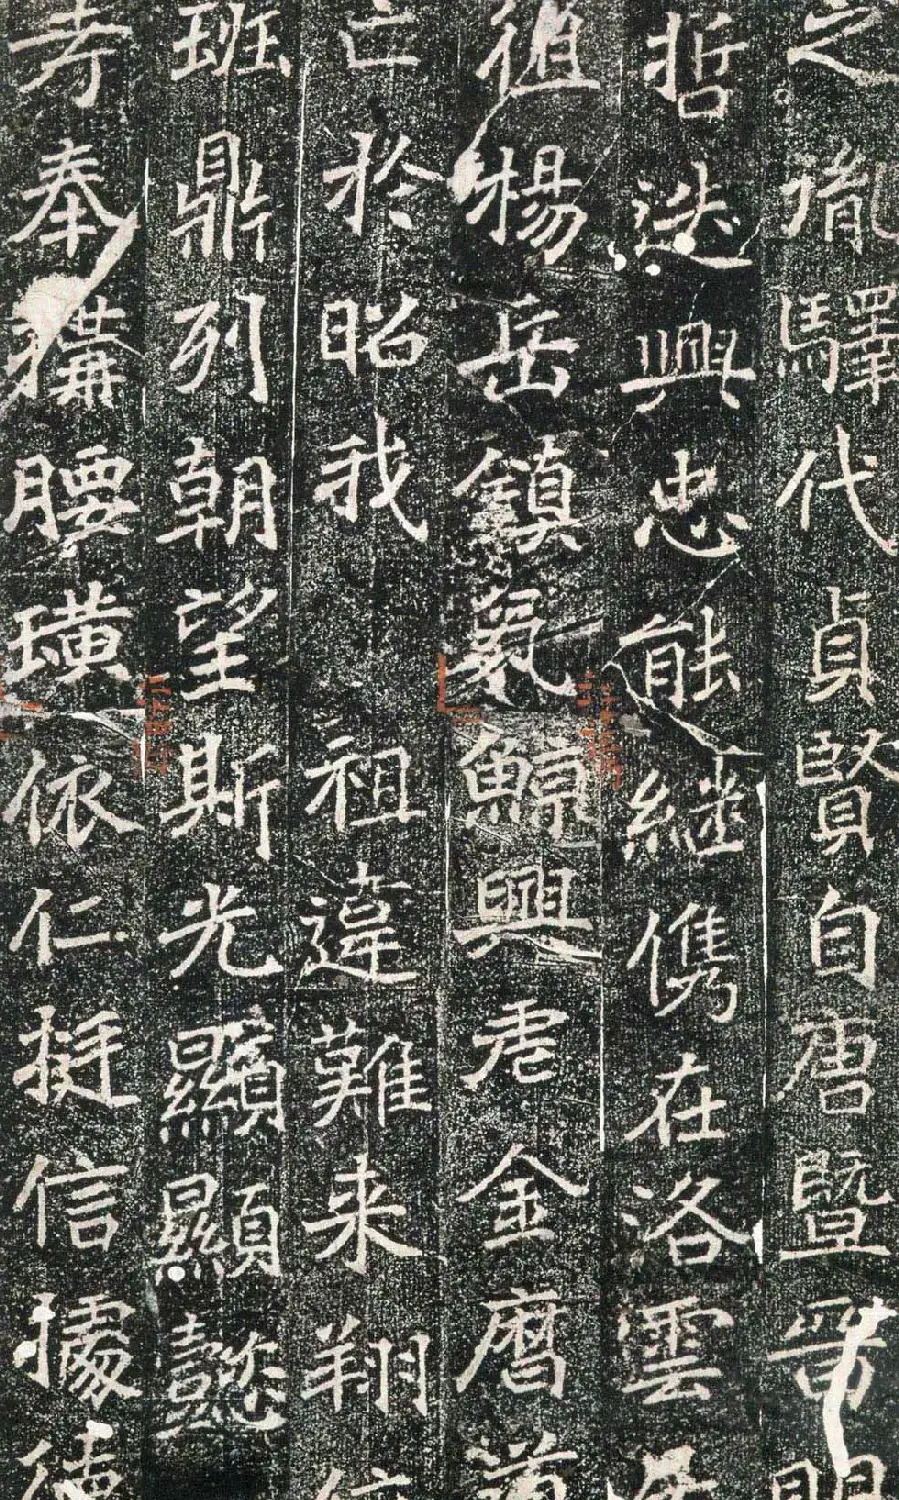 之胤驛代貞賢自唐暨晉
哲迭興忠能繼儁在洛雲
徂楊岳鎮氣鯨興君金磨道
亡於昭我 祖違難来翔
班鼎列朝望斯光顯顯懿
孝奉構腰璜依仁挺信據德